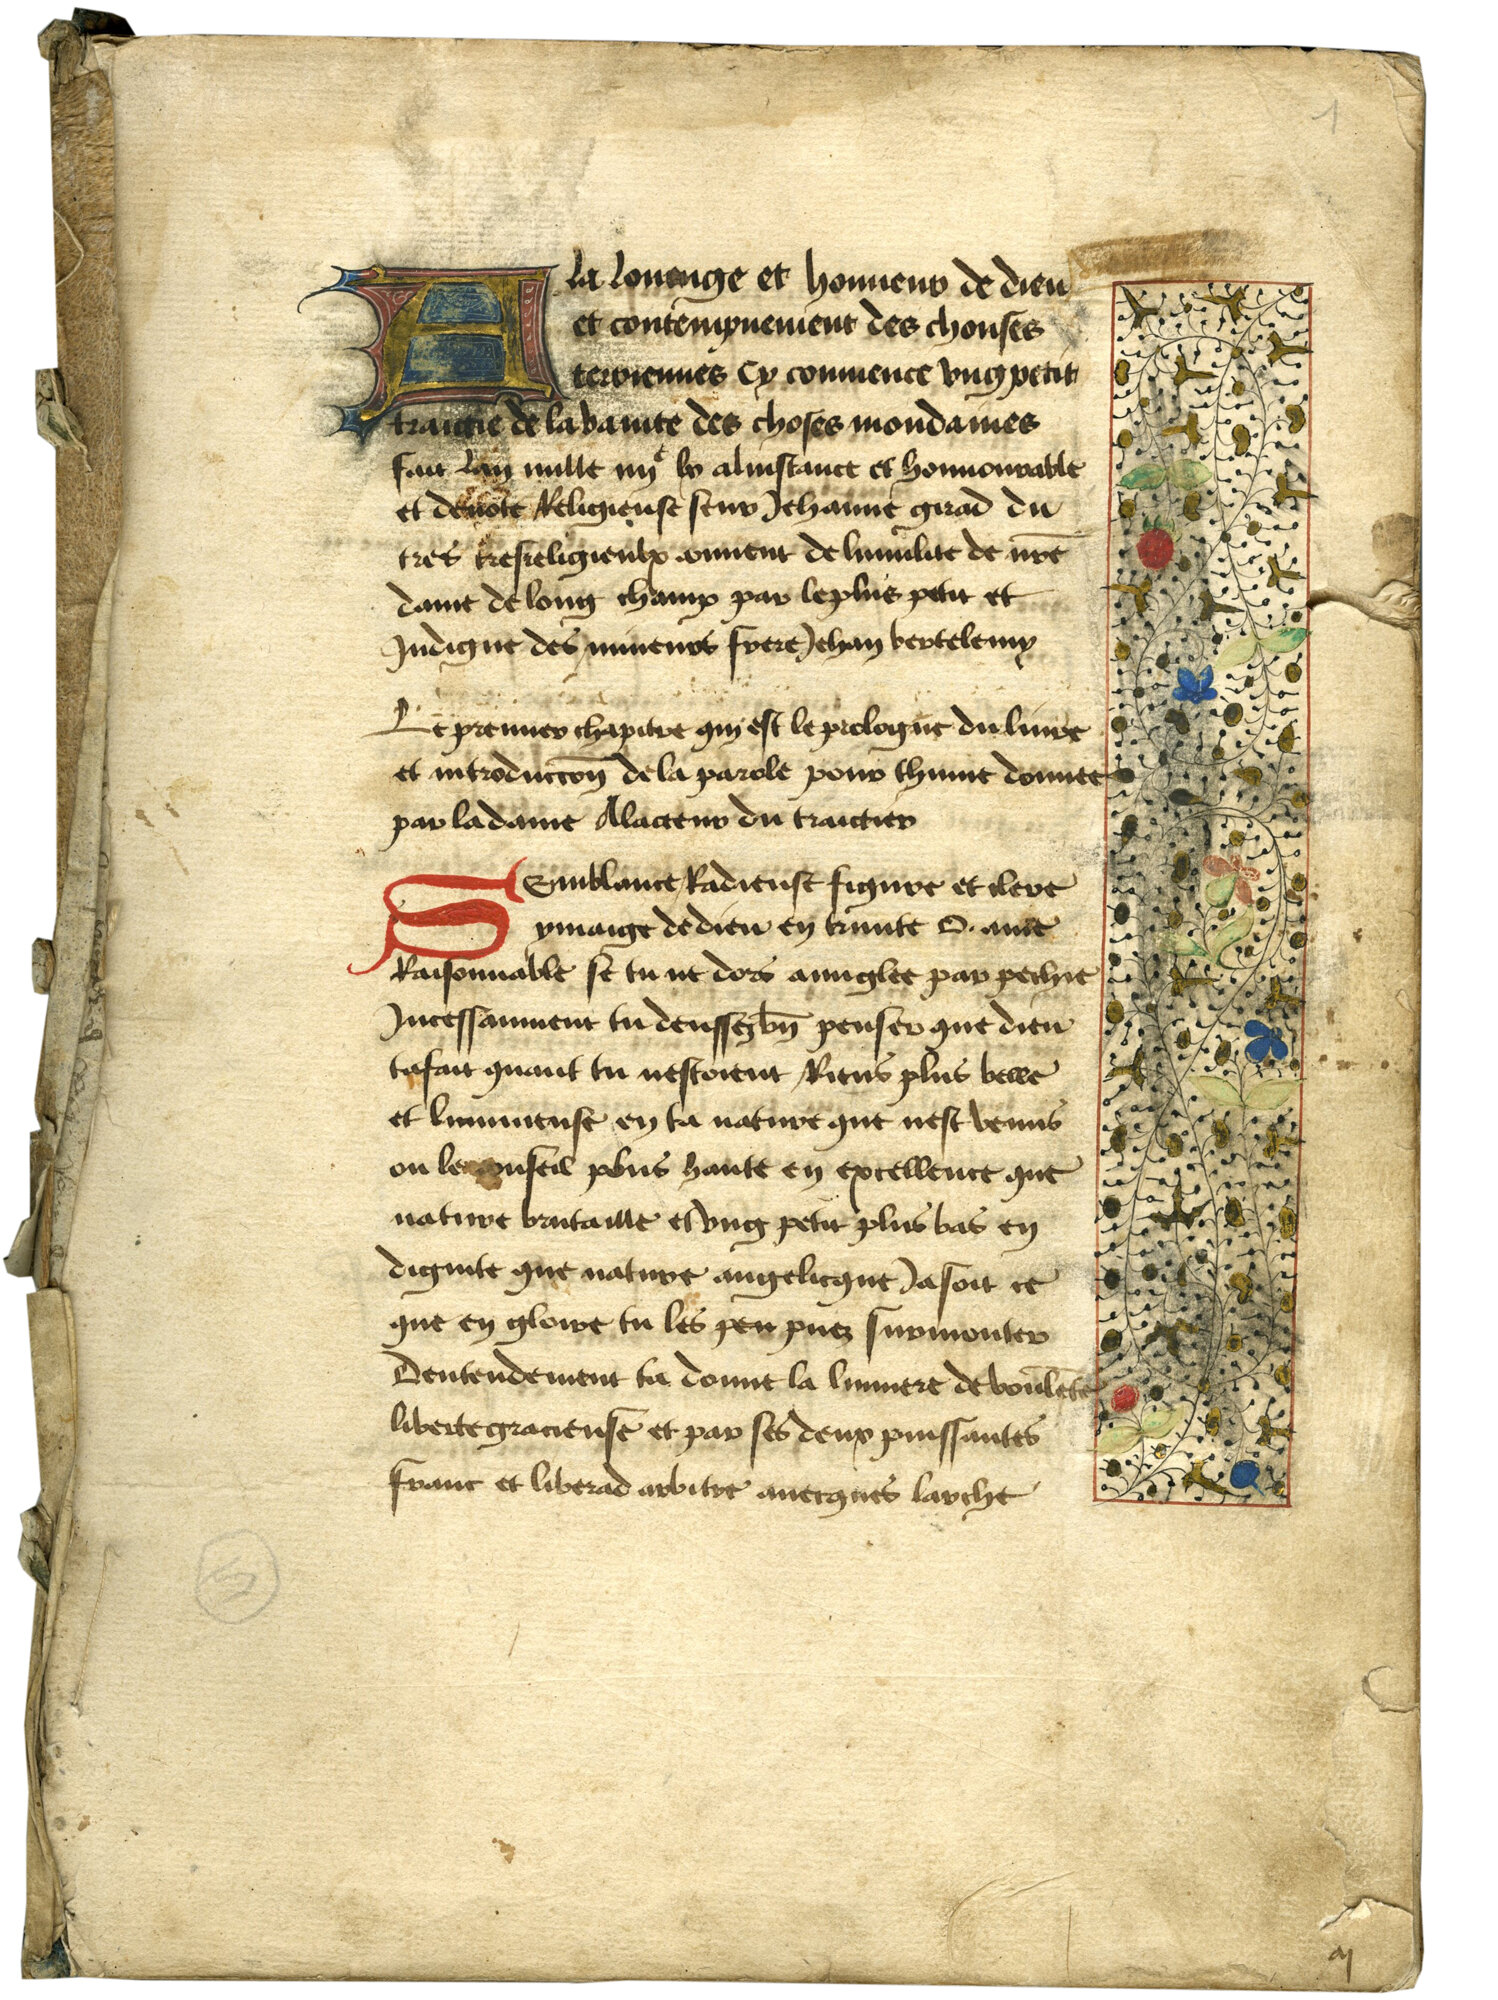 1
A la louenge et honneur de dieu
et contempnement des chouses
terriennes Cy commence vng petit
traictie de la vanite des choses mondaines
fait lan mille iiijc lx a linstance et honnourable
et deuote Religieuse seur Jehanne girad du
tres tresreligieulx conuent de lumilite de nr̄e
dame de long champ par le plus petit et
Jndigne des mineurs frere Jehan bertelemy
Le premier chapitre qui est le prologue du liure
et introduccōn de la parole pour thume donnee
par la dame Alacteur du traictier
Semblance Radieuse figure et clere
ymaige de dieu en trinite O. ame
Raisonnable se tu ne dors auuglee par pechie
Jncessamment tu deussez bn̄ penser que dieu
ta fait quant tu nestoient Riens plus belle
et lumineuse en ta nature que nest venus
ou le conseil plus haute en excellence que
nature brutaille et vng petit plus bas en
dignite que nature angelicque Jasoit ce
que en gloire tu les peu puez surmonter
Dentendement ta donne la lumiere de voulēte
liberte gracieuse et par ses deux puissantes
franc et liberad arbitre auecques larche
aj